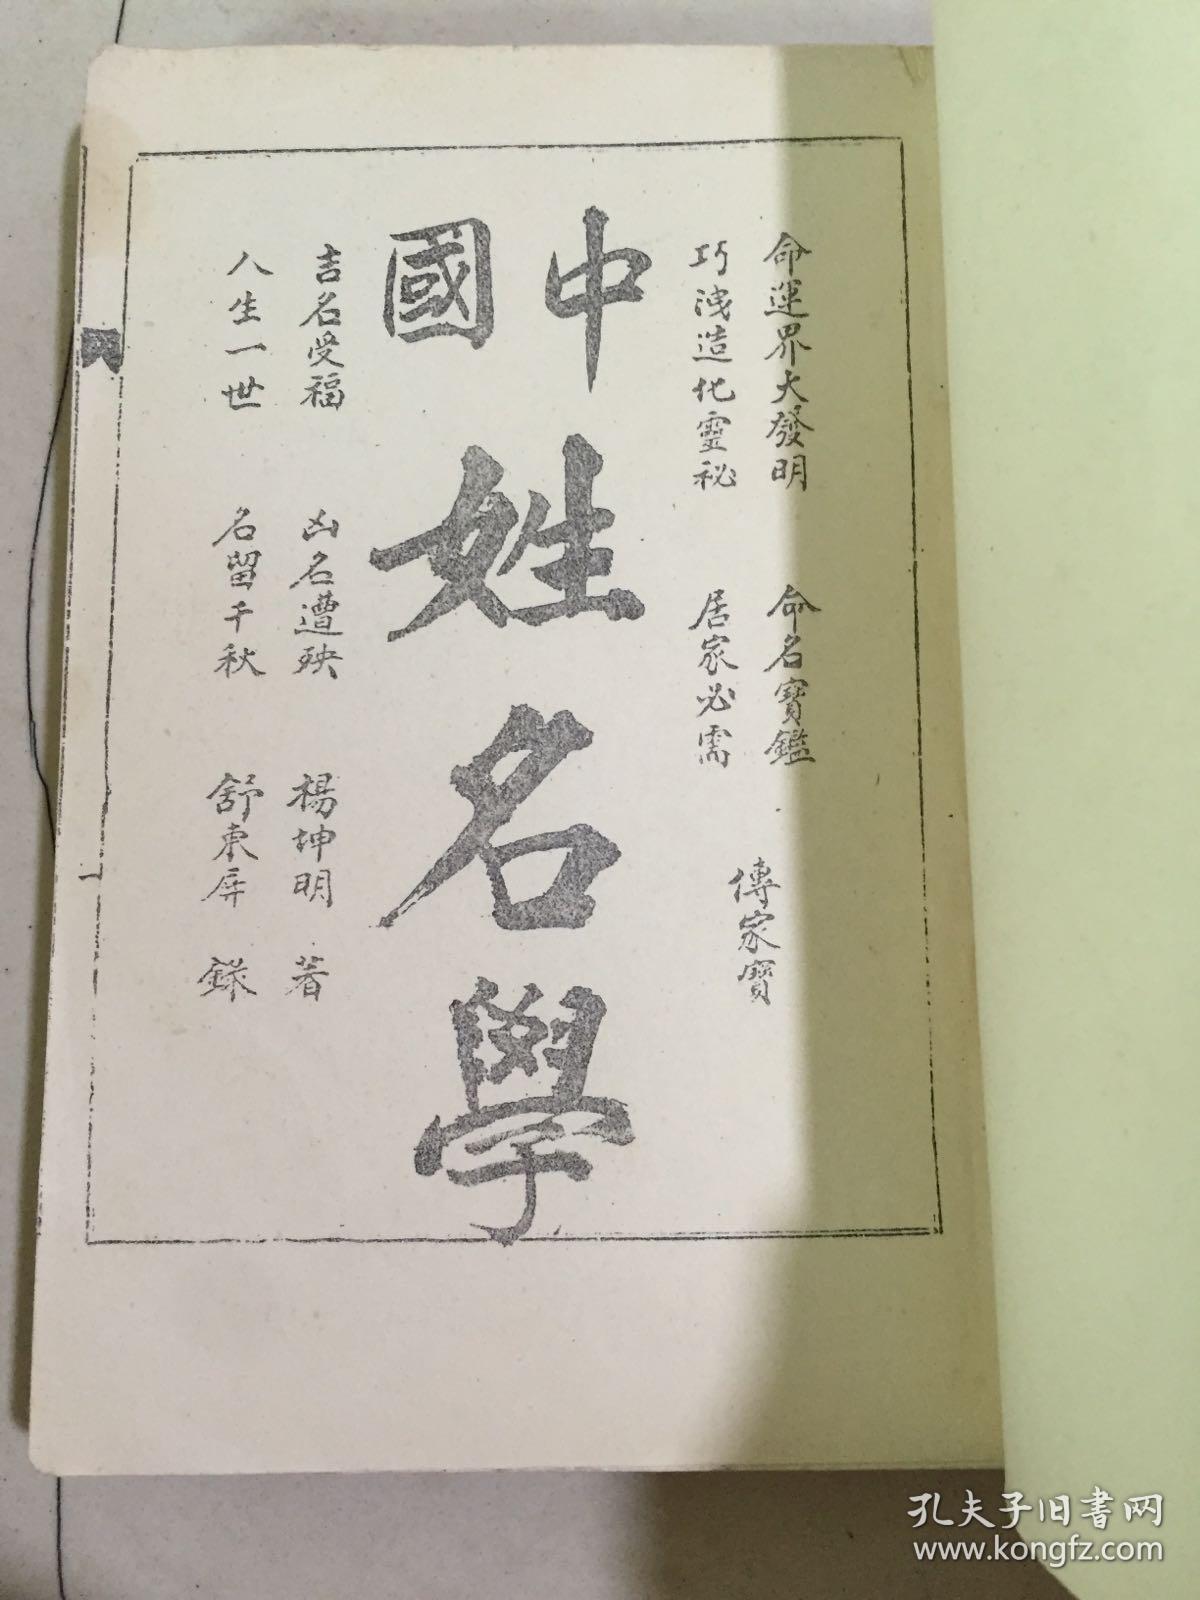 命運界大發明　命名寶鑑
巧洩造化靈祕　居家必需
傳家寶
中國姓名學
吉名受福　凶名遭殃　楊坤明　著
人生一世　名留千秋　舒東屏　錄
孔夫子旧书网
www.kongfz.com